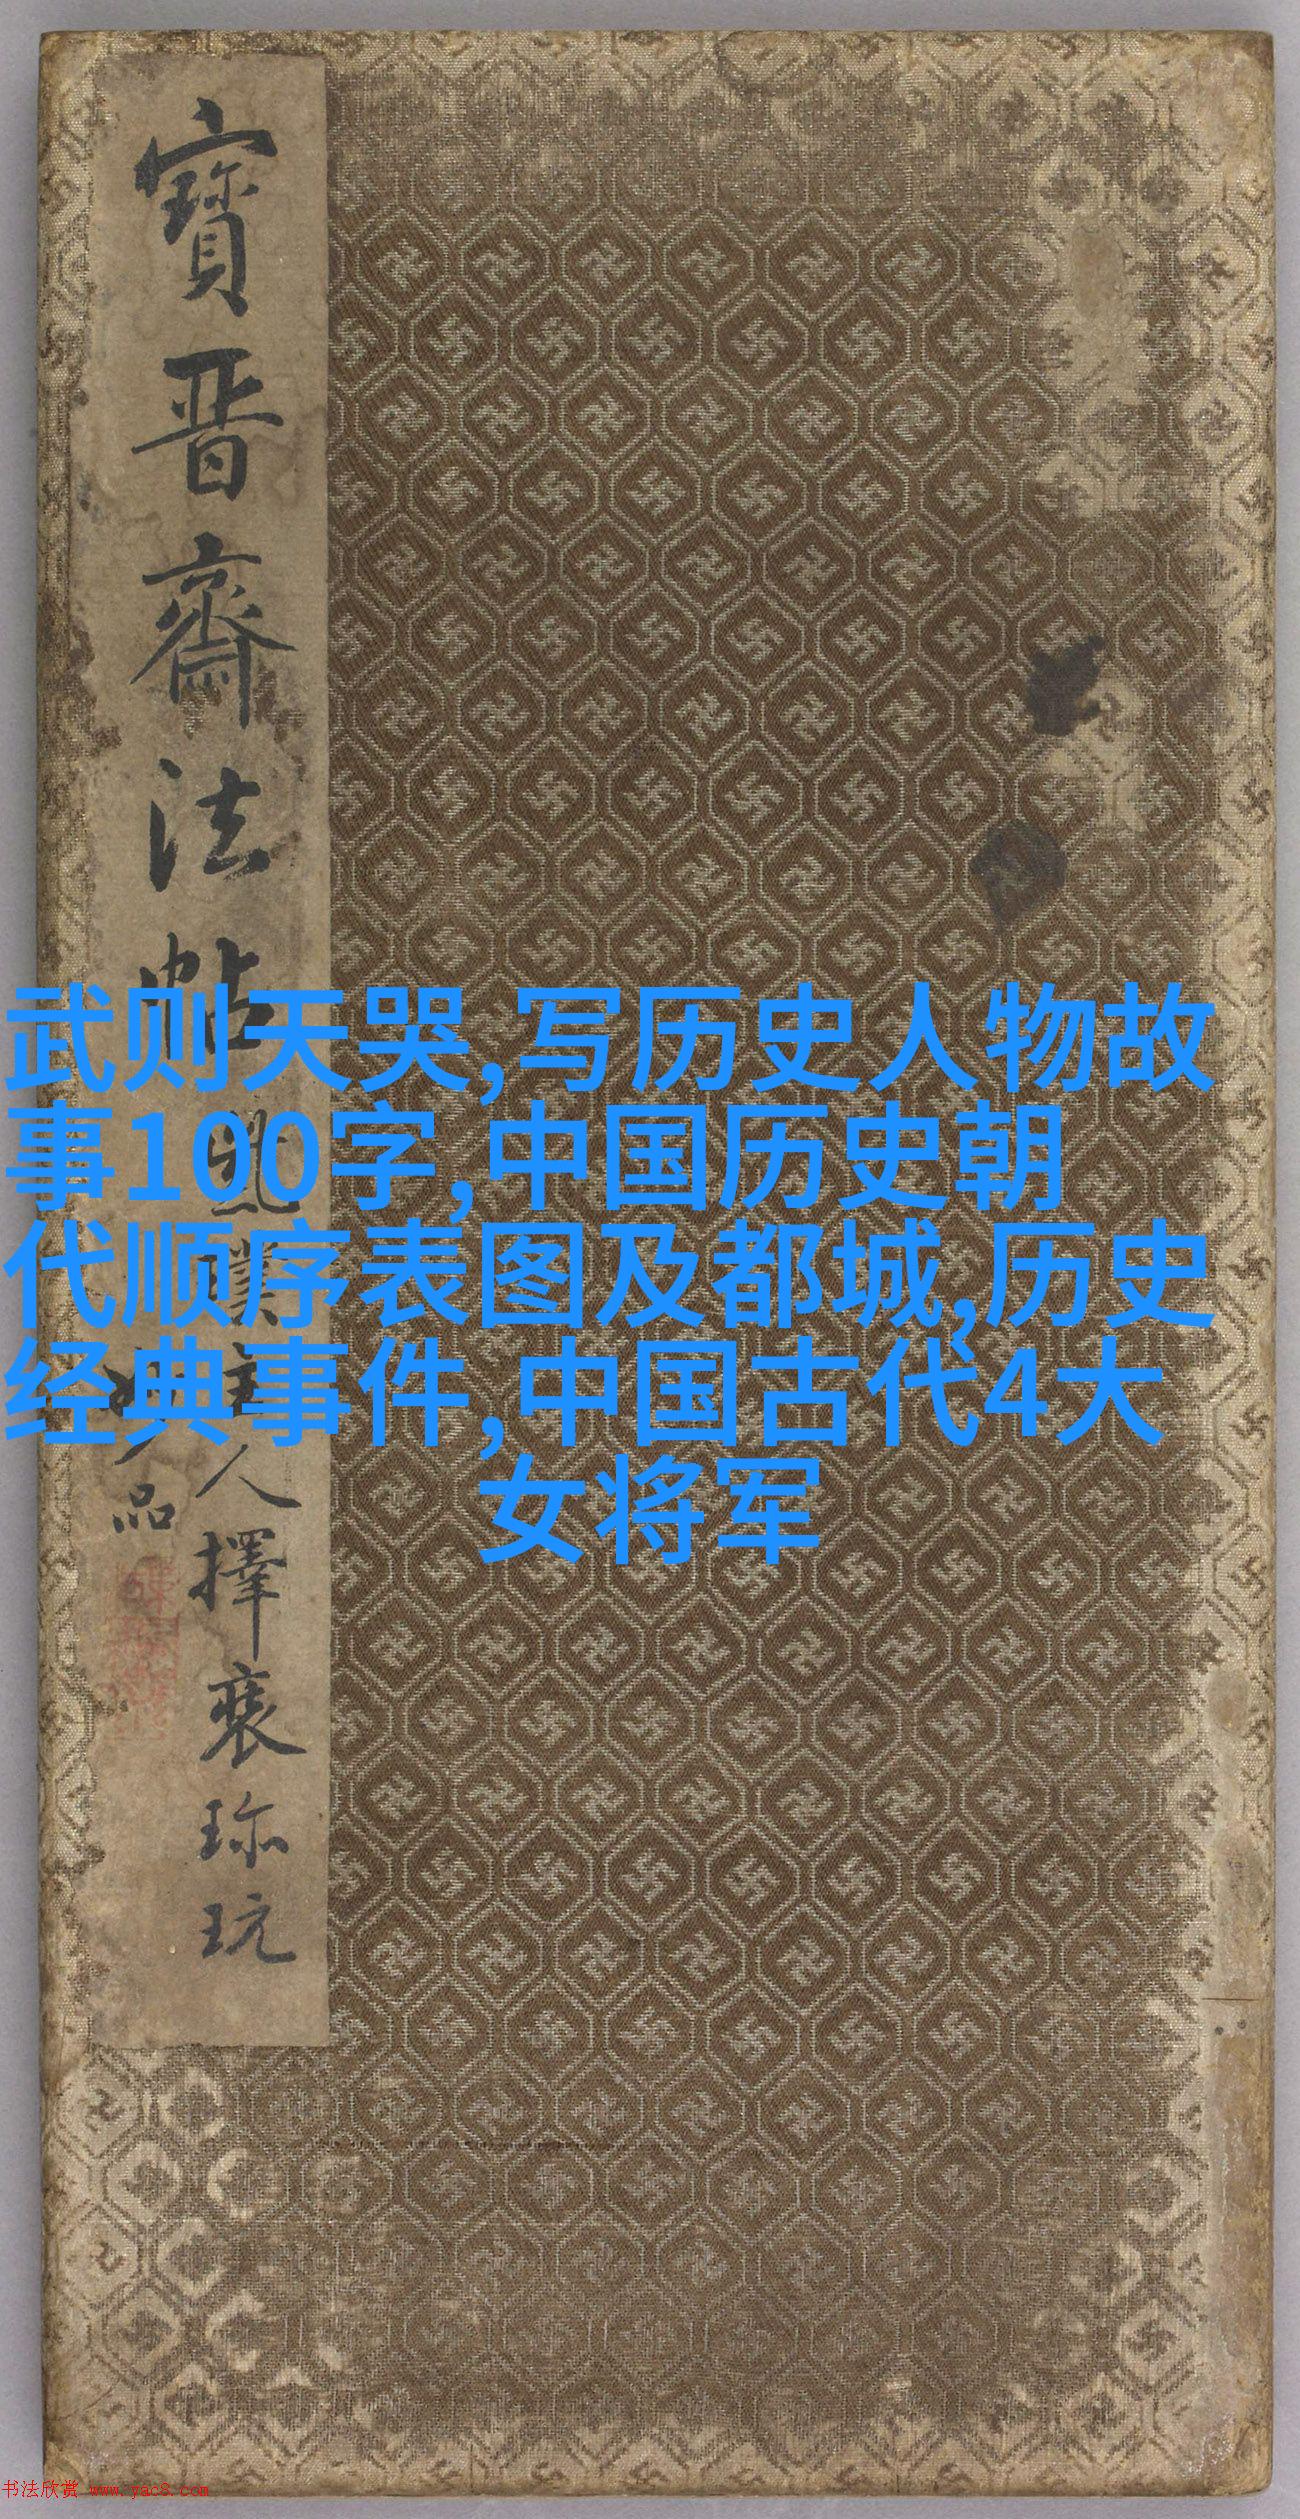 寶晋齋法帖
人擇裘珎玩
品
武则天哭,写历史人物故
事100字,中国历史朝
代顺序表图及都城,历史
经典事件,中国古代4大
女将军
书法欣赏 www.yac8.com